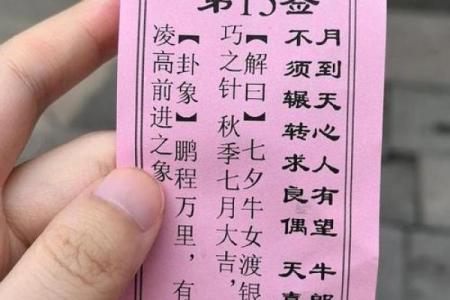 第15签
月到天心人有望 牛郎
不须辗转求良偶 天
【解曰】七夕牛女渡银
巧之针 秋季七月大吉，
【卦象】鹏程万里，有
凌高前进之象